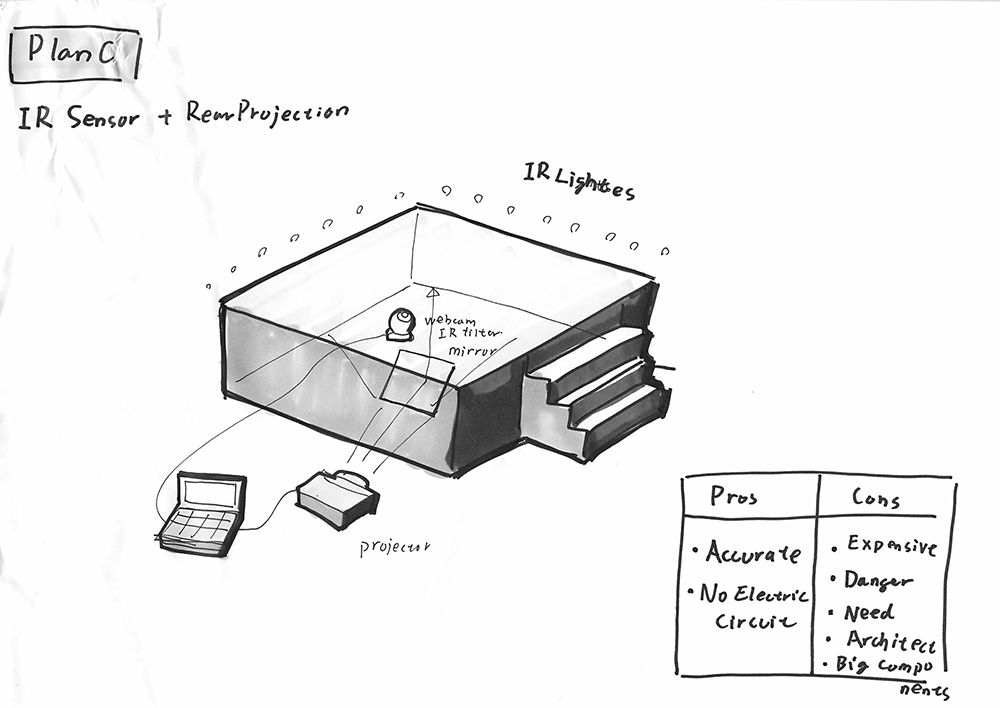 Plan C
IR Sensor + RearProjection
IR Lightes
webcam
IR filter
mirror
projector
Pros
Cons
• Accurate
• No Electric
Circuit
• Expensive
• Danger
• Need
• Architect
• Big Compo
nents